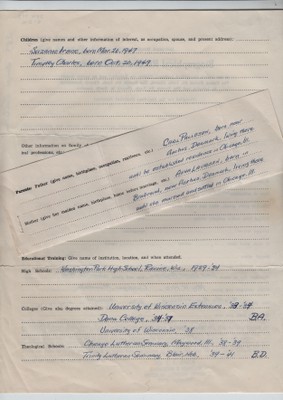 Children (give names and other information of interest, as occupation, spouse, and present address):
Suzanne Irene, born Mar. 26, 1947
Timothy Charles, born Oct. 20, 1949
Other information on family of
and professions, etc.
Parents: Father (give name, birthplace, occupation, residence, etc.) Carl Paulsen, born near
Aarhus Denmark, living there
until he established residence in Chicago Ill.
Mother (give her maiden name, birthplace, home before marriage, etc.) Anna Laursen, born in
near Aarhus Denmark, living there
until she married and settled in Chicago Ill.
Educational Training: Give name of institution, location, and when attended.
High School: Washington Park High School, Racine, Wis., 1929-34
Colleges (Give also degrees attained): University of Wisconsin Extension, '33-'34
Dana College, '34-'37 B.A.
University of Wisconsin, '38
Theological Schools: Chicago Lutheran Seminary, Maywood, Ill., '38-'39
Trinity Lutheran Seminary, Blair, Neb., '39-'41 B.D.